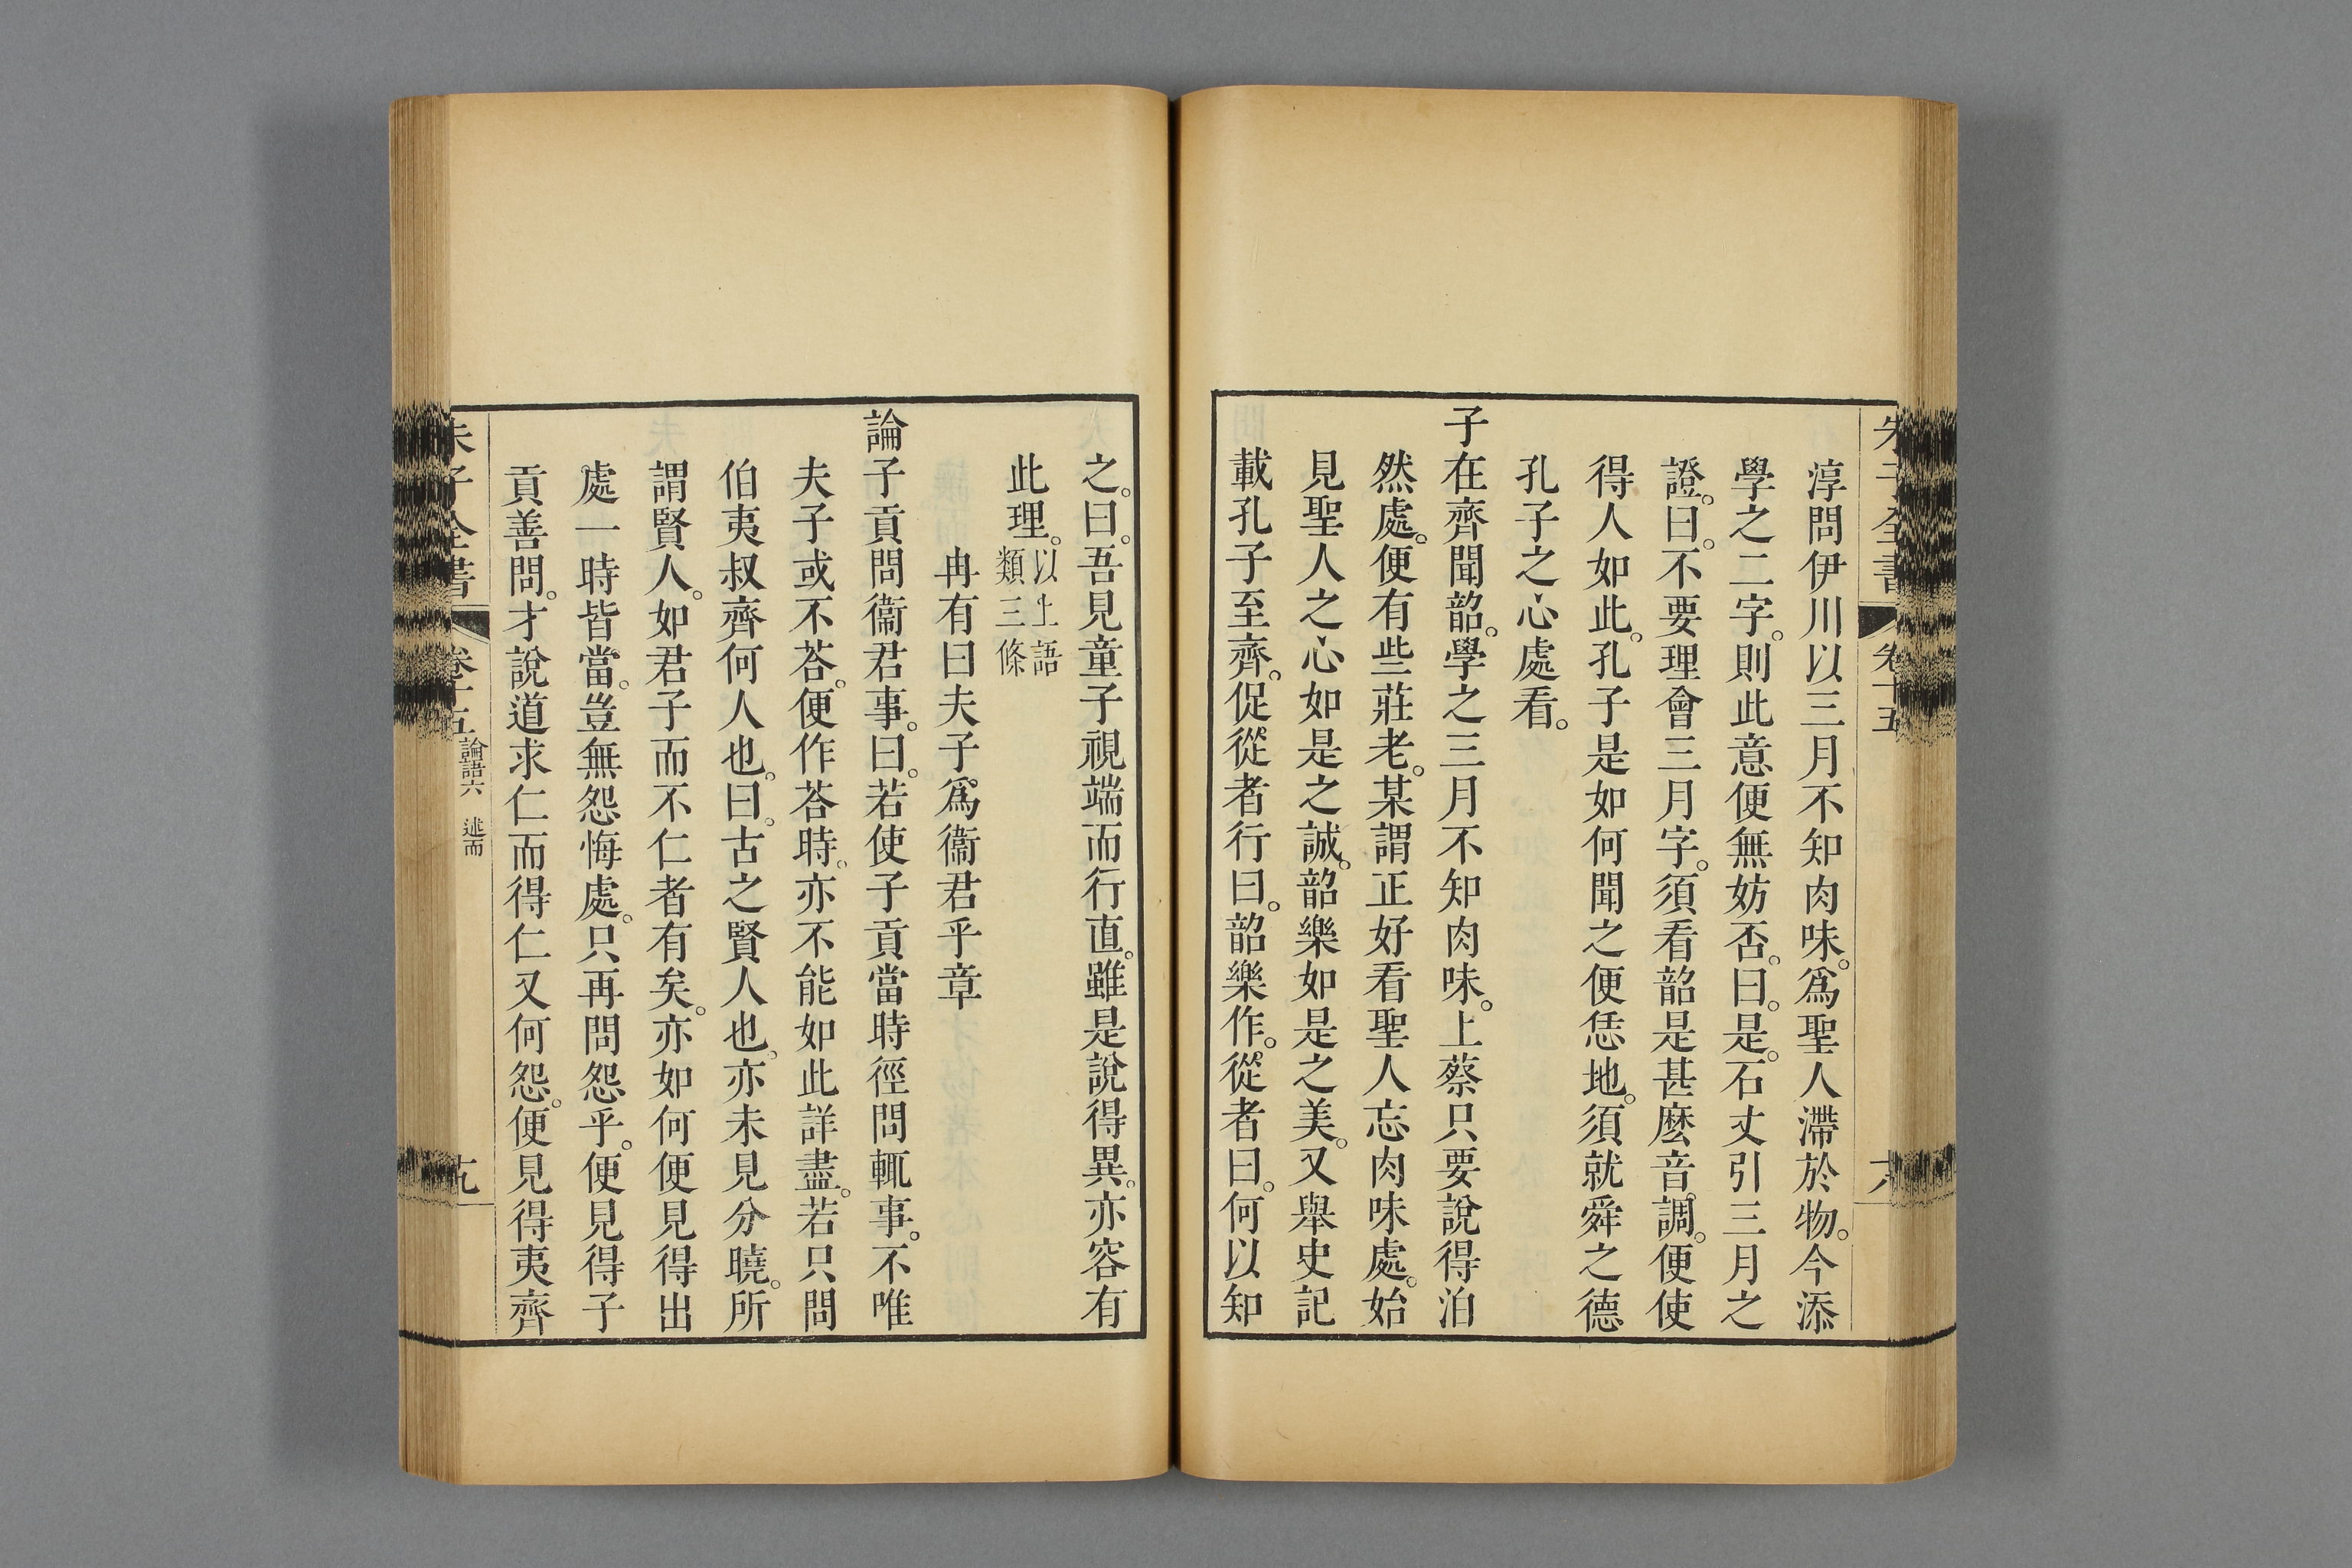 朱子全書 卷十五
淳問伊川以三月不知肉味。爲聖人滯於物。今添
學之二字。則此意便無妨否。曰。是。石丈引三月之
證。曰。不要理會三月字。須看韶是甚麽音調。便使
得人如此。孔子是如何聞之便恁地。須就舜之德
孔子之心處看。
子在齊聞韶。學之三月不知肉味。上蔡只要說得泊
然處。便有些莊老。某謂正好看聖人忘肉味處。始
見聖人之心如是之誠。韶樂如是之美。又舉史記
載孔子至齊。促從者行曰。韶樂作。從者曰。何以知
之。曰。吾見童子視端而行直。雖是說得異。亦容有
此理。以上語類三條
冉有曰夫子爲衞君乎章
論子貢問衞君事。曰。若使子貢當時徑問輒事。不唯
夫子或不荅。便作荅時。亦不能如此詳盡。若只問
伯夷叔齊何人也。曰。古之賢人也。亦未見分曉。所
謂賢人。如君子而不仁者有矣。亦如何便見得出
處一時皆當。豈無怨悔處。只再問怨乎。便見得子
貢善問。才說道求仁而得仁又何怨。便見得夷齊
朱子全書 卷十五 論語六 述而